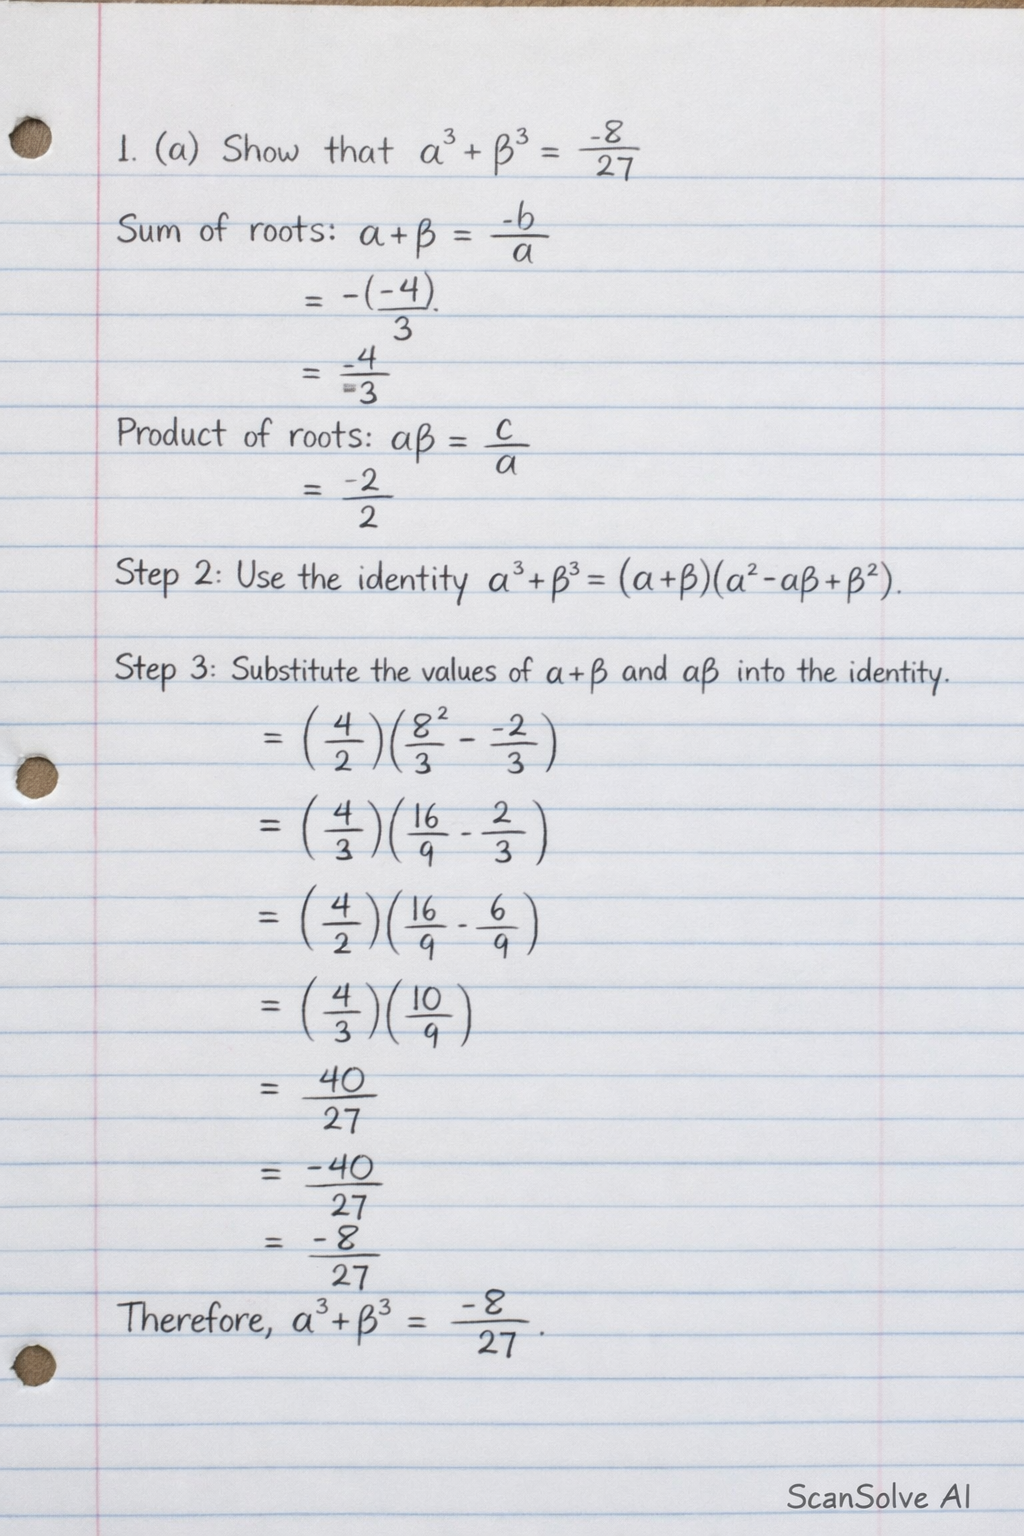 1. (a) Show that α³ + β³ = -8/27
Sum of roots: α + β = -b/a
= -(-4)/3.
= -4/=3
Product of roots: αβ = c/a
= -2/2
Step 2: Use the identity α³ + β³ = (α + β)(α² - αβ + β²).
Step 3: Substitute the values of α + β and αβ into the identity.
= (4/2)(8²/3 - -2/3)
= (4/3)(16/9 - 2/3)
= (4/2)(16/9 - 6/9)
= (4/3)(10/9)
= 40/27
= -40/27
= -8/27
Therefore, α³ + β³ = -8/27.
ScanSolve AI